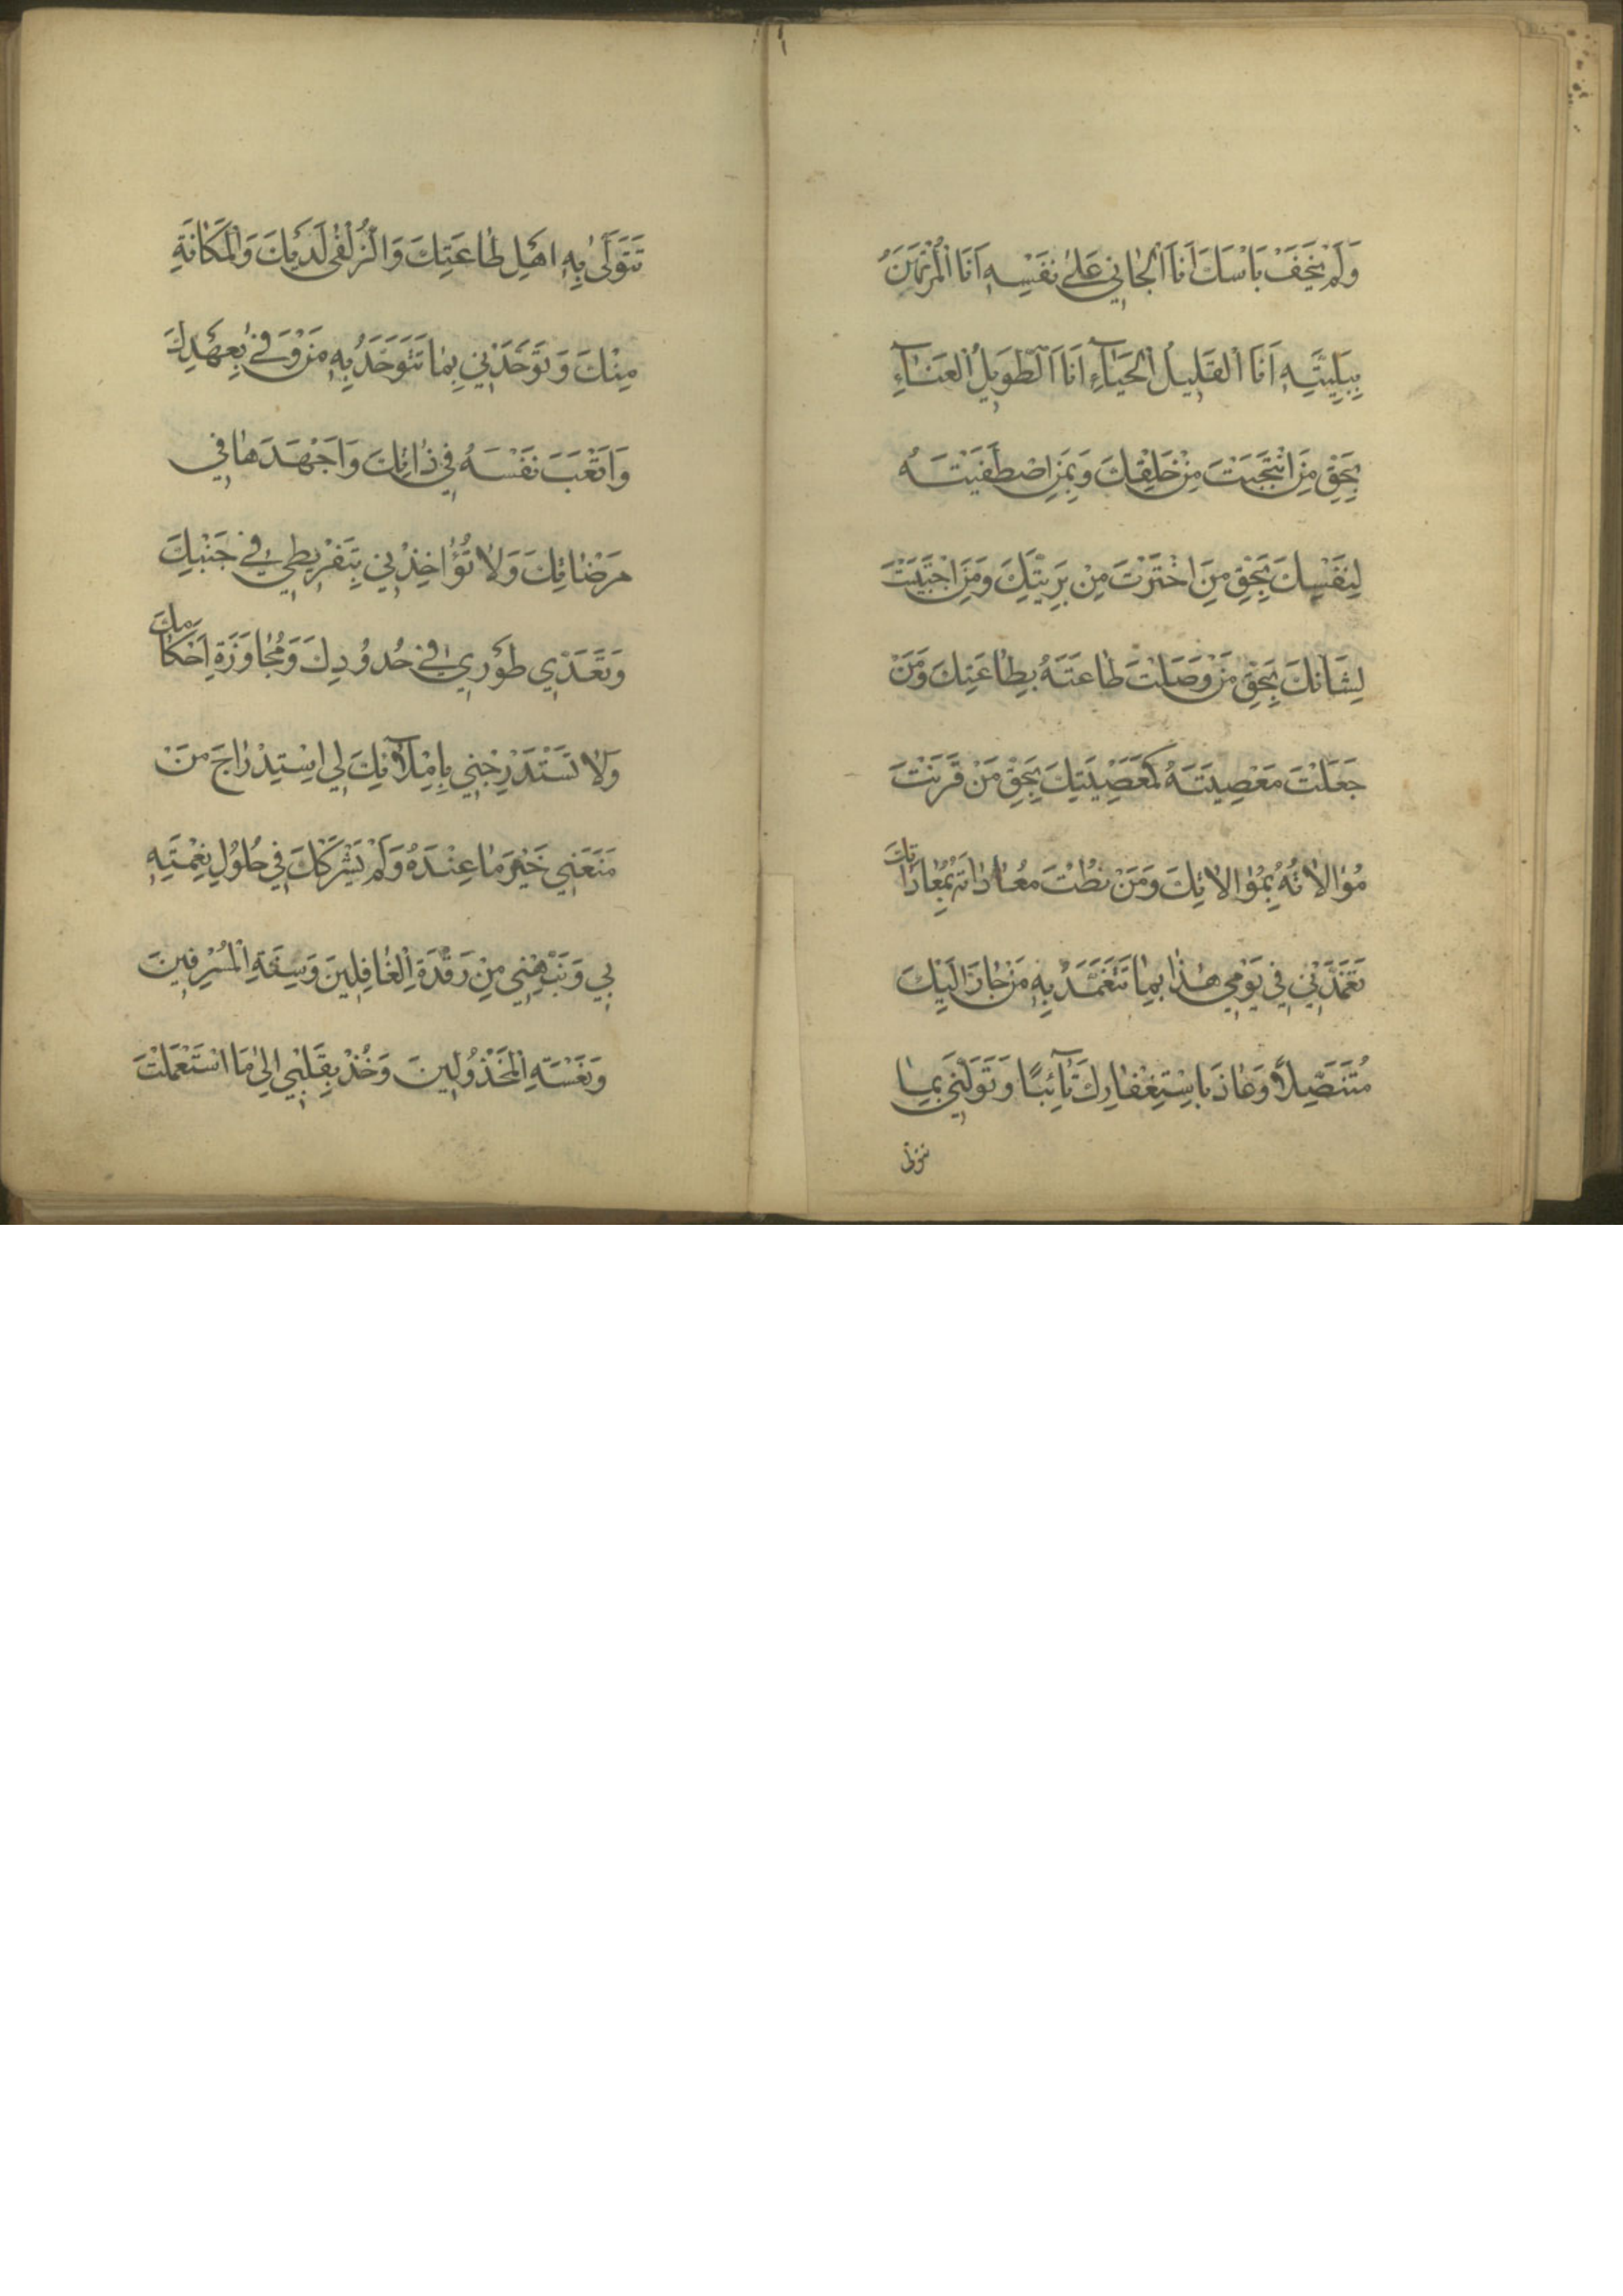 وَلَمْ يَخَفْ بَأْسَكَ اَنَا الْجَانِي عَلىٰ نَفْسِهِ اَنَا الْمُرْتَهَنُ
بِبَلِيَّتِهِ اَنَا الْقَلِيلُ الْحَيَاءِ اَنَا الطَّوِيلُ الْعَنَاءِ
بِحَقِّ مَنِ انْتَجَبْتَ مِنْ خَلْقِكَ وَبِمَنِ اصْطَفَيْتَهُ
لِنَفْسِكَ بِحَقِّ مَنِ اخْتَرْتَ مِنْ بَرِيَّتِكَ وَمَنِ اجْتَبَيْتَ
لِشَأْنِكَ بِحَقِّ مَنْ وَصَلْتَ طَاعَتَهُ بِطَاعَتِكَ وَمَنْ
جَعَلْتَ مَعْصِيَتَهُ كَمَعْصِيَتِكَ بِحَقِّ مَنْ قَرَنْتَ
مُوَالَاتَهُ بِمُوَالَاتِكَ وَمَنْ نُطْتَ مُعَادَاتَهُ بِمُعَادَاتِكَ
تَغَمَّدْنِي فِي يَوْمِي هٰذَا بِمَا تَتَغَمَّدُ بِهِ مَنْ جَارَ اِلَيْكَ
مُتَنَصِّلًا وَعَاذَ بِاسْتِغْفَارِكَ تَائِبًا وَتَوَلَّنِي بِمَا
تتولى
تَتَوَلّىٰ بِهِ اَهْلَ طَاعَتِكَ وَالزُّلْفىٰ لَدَيْكَ وَالْمَكَانَةِ
مِنْكَ وَتَوَحَّدْنِي بِمَا تَتَوَحَّدُ بِهِ مَنْ وَفىٰ بِعَهْدِكَ
وَاَتْعَبَ نَفْسَهُ فِي ذَاتِكَ وَاَجْهَدَهَا فِي
مَرْضَاتِكَ وَلَا تُؤَاخِذْنِي بِتَفْرِيطِي فِي جَنْبِكَ
وَتَعَدِّي طَوْرِي فِي حُدُودِكَ وَمُجَاوَزَةِ اَحْكَامِكَ
وَلَا تَسْتَدْرِجْنِي بِاِمْلَائِكَ لِي اسْتِدْرَاجَ مَنْ
مَنَعَنِي خَيْرَ مَا عِنْدَهُ وَلَمْ يَشْرَكْكَ فِي حُلُولِ نِعْمَتِهِ
بِي وَنَبِّهْنِي مِنْ رَقْدَةِ الْغَافِلِينَ وَسِنَةِ الْمُسْرِفِينَ
وَنَعْسَةِ الْمَخْذُولِينَ وَخُذْ بِقَلْبِي اِلىٰ مَا اسْتَعْمَلْتَ